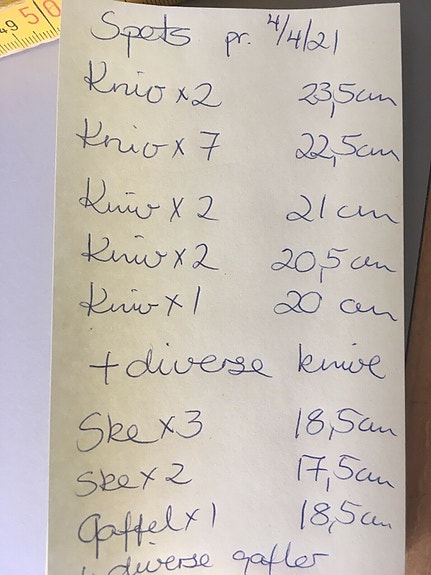 49 50
Spots pr. 4/4/21
Kniv x 2 23,5cm
Kniv x 7 22,5cm
Kniv x 2 21 cm
Kniv x 2 20,5 cm
Kniv x 1 20 cm
+ diverse knive
Ske x 3 18,5cm
Ske x 2 17,5cm
Gaffel x 1 18,5cm
+ diverse gafler